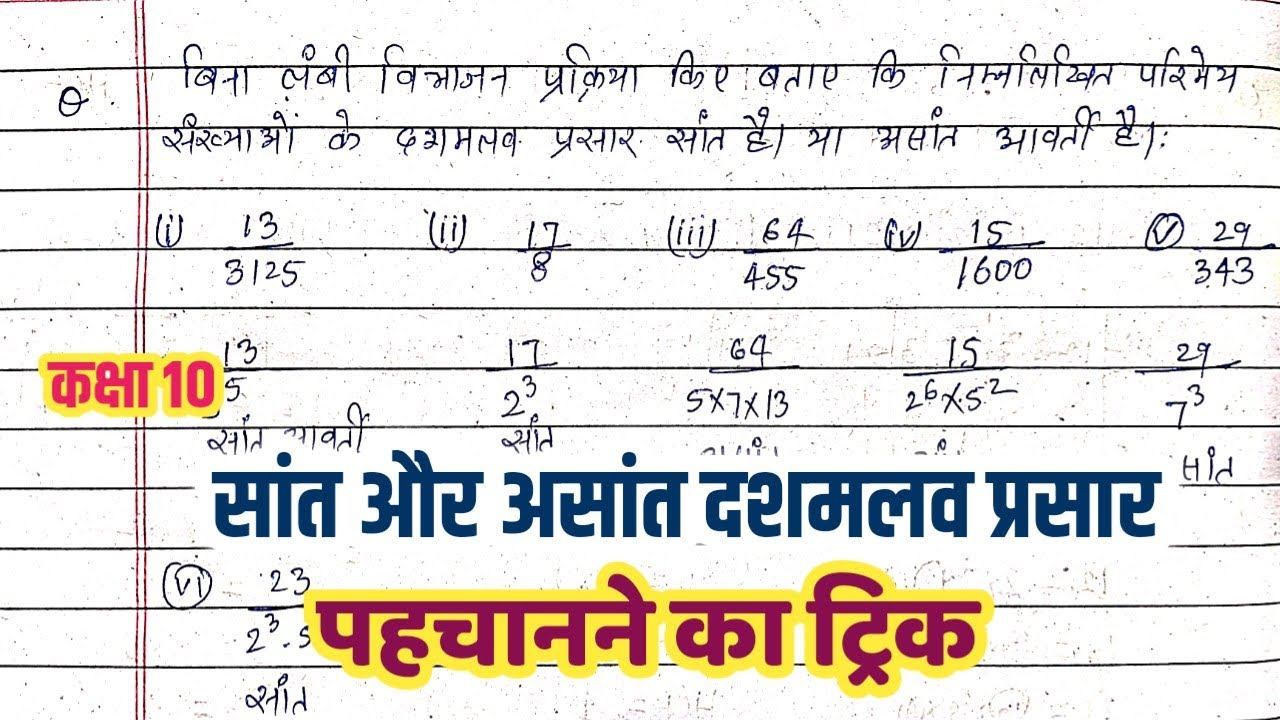 बिना लंबी विभाजन प्रक्रिया किए बताए कि निम्नलिखित परिमेय
Q. संख्याओं के दशमलव प्रसार सांत है। या असांत आवर्ती है।:
(i) 13/3125 (ii) 17/8 (iii) 64/455 (iv) 15/1600 (v) 29/343
13/5 17/2³ 64/5×7×13 15/2⁶×5² 29/7³
कक्षा 10
सांत आवर्ती सांत सांत
सांत और असांत दशमलव प्रसार
(vi) 23/2³·5
पहचानने का ट्रिक
सांत